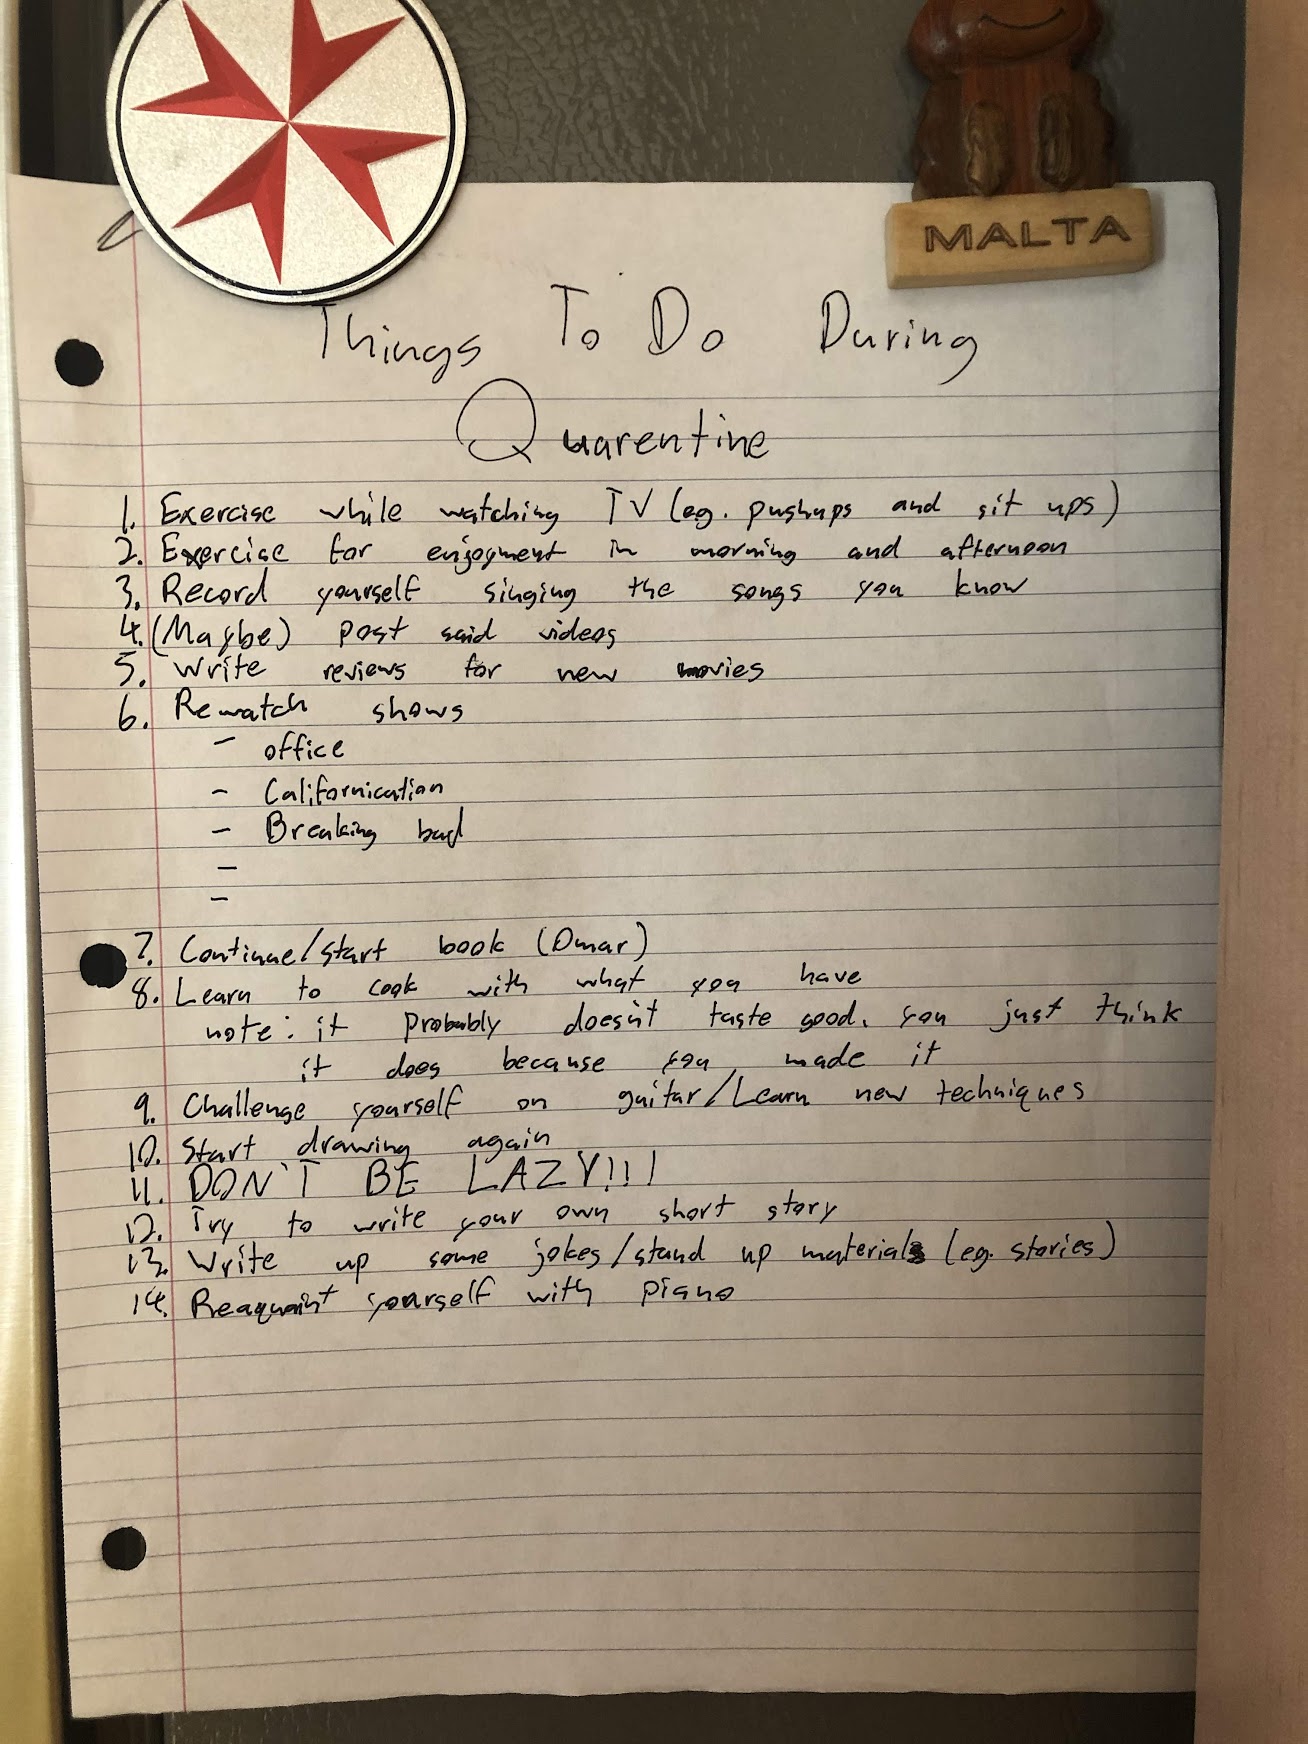 MALTA
Things To Do During
Quarentine
1. Exercise while watching TV (eg. pushups and sit ups)
2. Exercise for enjoyment in morning and afternoon
3. Record yourself singing the songs you know
4. (Maybe) post said videos
5. Write reviews for new movies
6. Rewatch shows
- office
- Californication
- Breaking bad
-
-
7. Continue/start book (Omar)
8. Learn to cook with what you have
note: it probably doesn't taste good. you just think
it does because you made it
9. Challenge yourself on guitar/Learn new techniques
10. Start drawing again
11. DON'T BE LAZY!!!
12. Try to write your own short story
13. Write up some jokes/stand up materials (eg. stories)
14. Reaquaint yourself with piano